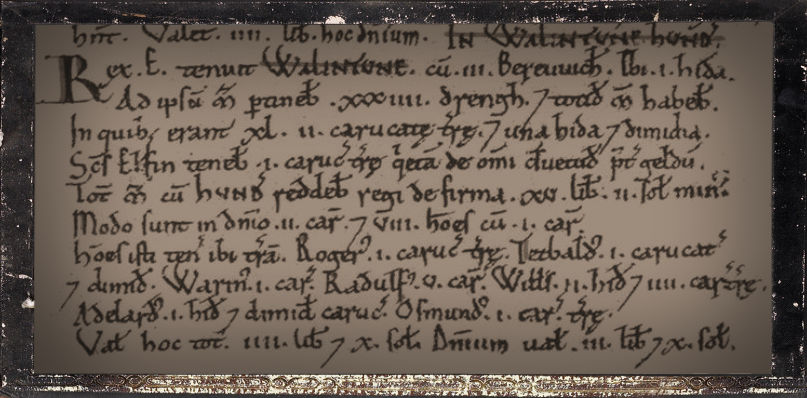 hn̄t. Valet. iiii. lib. hoc dnium. IN WALINTUNE HUND̃.
Rex. E. tenuit WALINTUNE. cū. iii. Bereuuich̃. Ibi. i. hida.
Ad ipsā m̃ ptineb̃. xxxiiii. drengh̃. ⁊ totid̃ m̃ habeb̃.
In quib; erant xl. ii. carucatę trę. ⁊ una hida ⁊ dimidia.
Sc̄s Elfin teneb̃. i. caruc̃ trę q̇etā de om̄i c̄suetud̃ p̃t geldū.
Tot̃ m̃ cū HUND̃ reddeb̃ regi de firma. xv. lib̃. ii. sol̃ min᷒.
Modo sunt in dn̄io. ii. car̃. ⁊ viii. hōes cū. i. car̃.
hōes isti ten̄ ibi trā. Roger᷒. i. caruc̃ trę. Tetbald᷒. i. carucat̃
⁊ dimid̃. Warin᷒. i. car̃. Radulf᷒. v. car̃. Willł. ii. hid̃ ⁊ iiii. car̃ trę.
Adelard᷒. i. hid̃ ⁊ dimid̃ caruc̃. Osmund᷒. i. car̃ trę.
Val̃ hoc tot̃. iiii. lib̃ ⁊ x. sol̃. Dn̄ium ual̃. iii. lib̃ ⁊ x. sol̃.